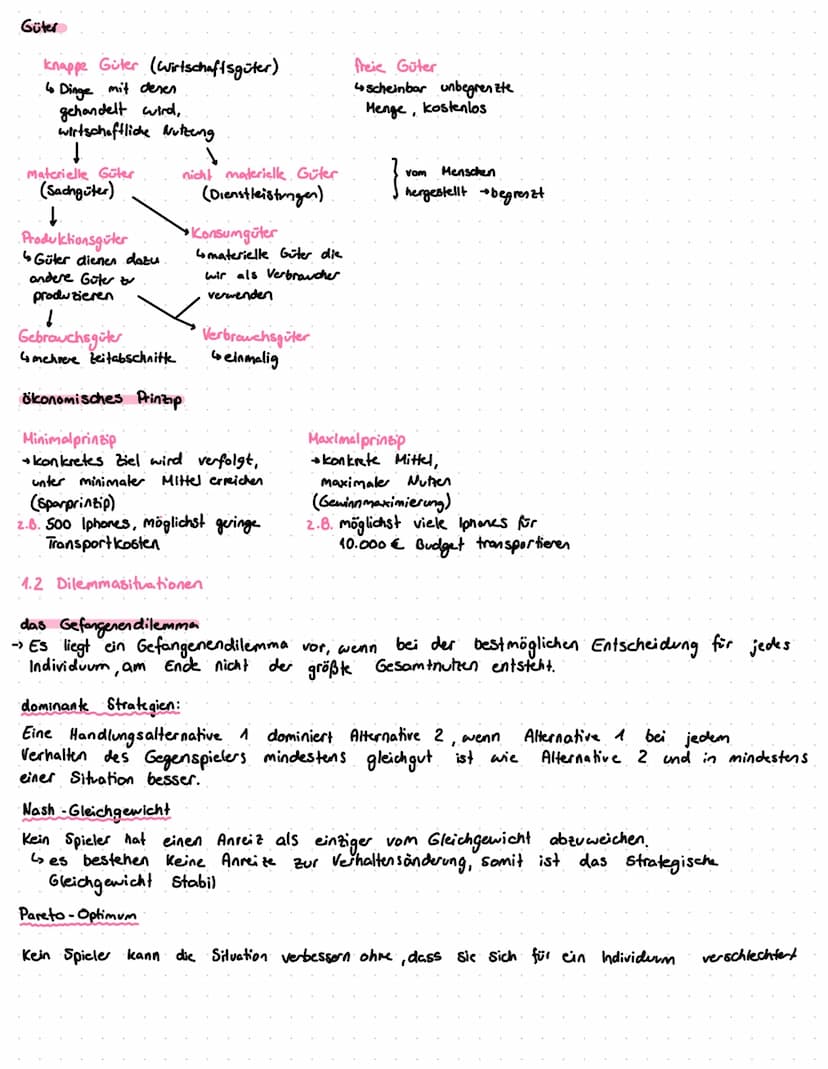 Güter
knappe Güter (Wirtschaftsgüter)
↳ Dinge mit denen
gehandelt wird,
wirtschaftliche Nutzung
freie Güter
↳ scheinbar unbegrenzte
Menge, kostenlos
materielle Güter
(Sachgüter)
nicht materielle Güter
(Dienstleistungen)
} vom Menschen
hergestellt → begrenzt
Produktionsgüter
↳ Güter dienen dazu
andere Güter zu
produzieren
Konsumgüter
↳ materielle Güter die
wir als Verbraucher
verwenden
Gebrauchsgüter
↳ mehrere Zeitabschnitte
Verbrauchsgüter
↳ einmalig
ökonomisches Prinzip
Minimalprinzip
→ konkretes Ziel wird verfolgt,
unter minimaler Mittel erreichen
(Sparprinzip)
z.B. 500 Iphones, möglichst geringe
Transportkosten
Maximalprinzip
→ konkrete Mittel,
maximaler Nutzen
(Gewinnmaximierung)
z.B. möglichst viele Iphones für
10.000 € Budget transportieren
1.2 Dilemmasituationen
das Gefangenendilemma
→ Es liegt ein Gefangenendilemma vor, wenn bei der bestmöglichen Entscheidung für jedes
Individuum, am Ende nicht der größte Gesamtnutzen entsteht.
dominante Strategien:
Eine Handlungsalternative 1 dominiert Alternative 2, wenn Alternative 1 bei jedem
Verhalten des Gegenspielers mindestens gleichgut ist wie Alternative 2 und in mindestens
einer Situation besser.
Nash-Gleichgewicht
Kein Spieler hat einen Anreiz als einziger vom Gleichgewicht abzuweichen.
↳ es bestehen keine Anreize zur Verhaltensänderung, somit ist das strategische
Gleichgewicht stabil
Pareto-Optimum
Kein Spieler kann die Situation verbessern ohne, dass sie sich für ein Individuum verschlechtert